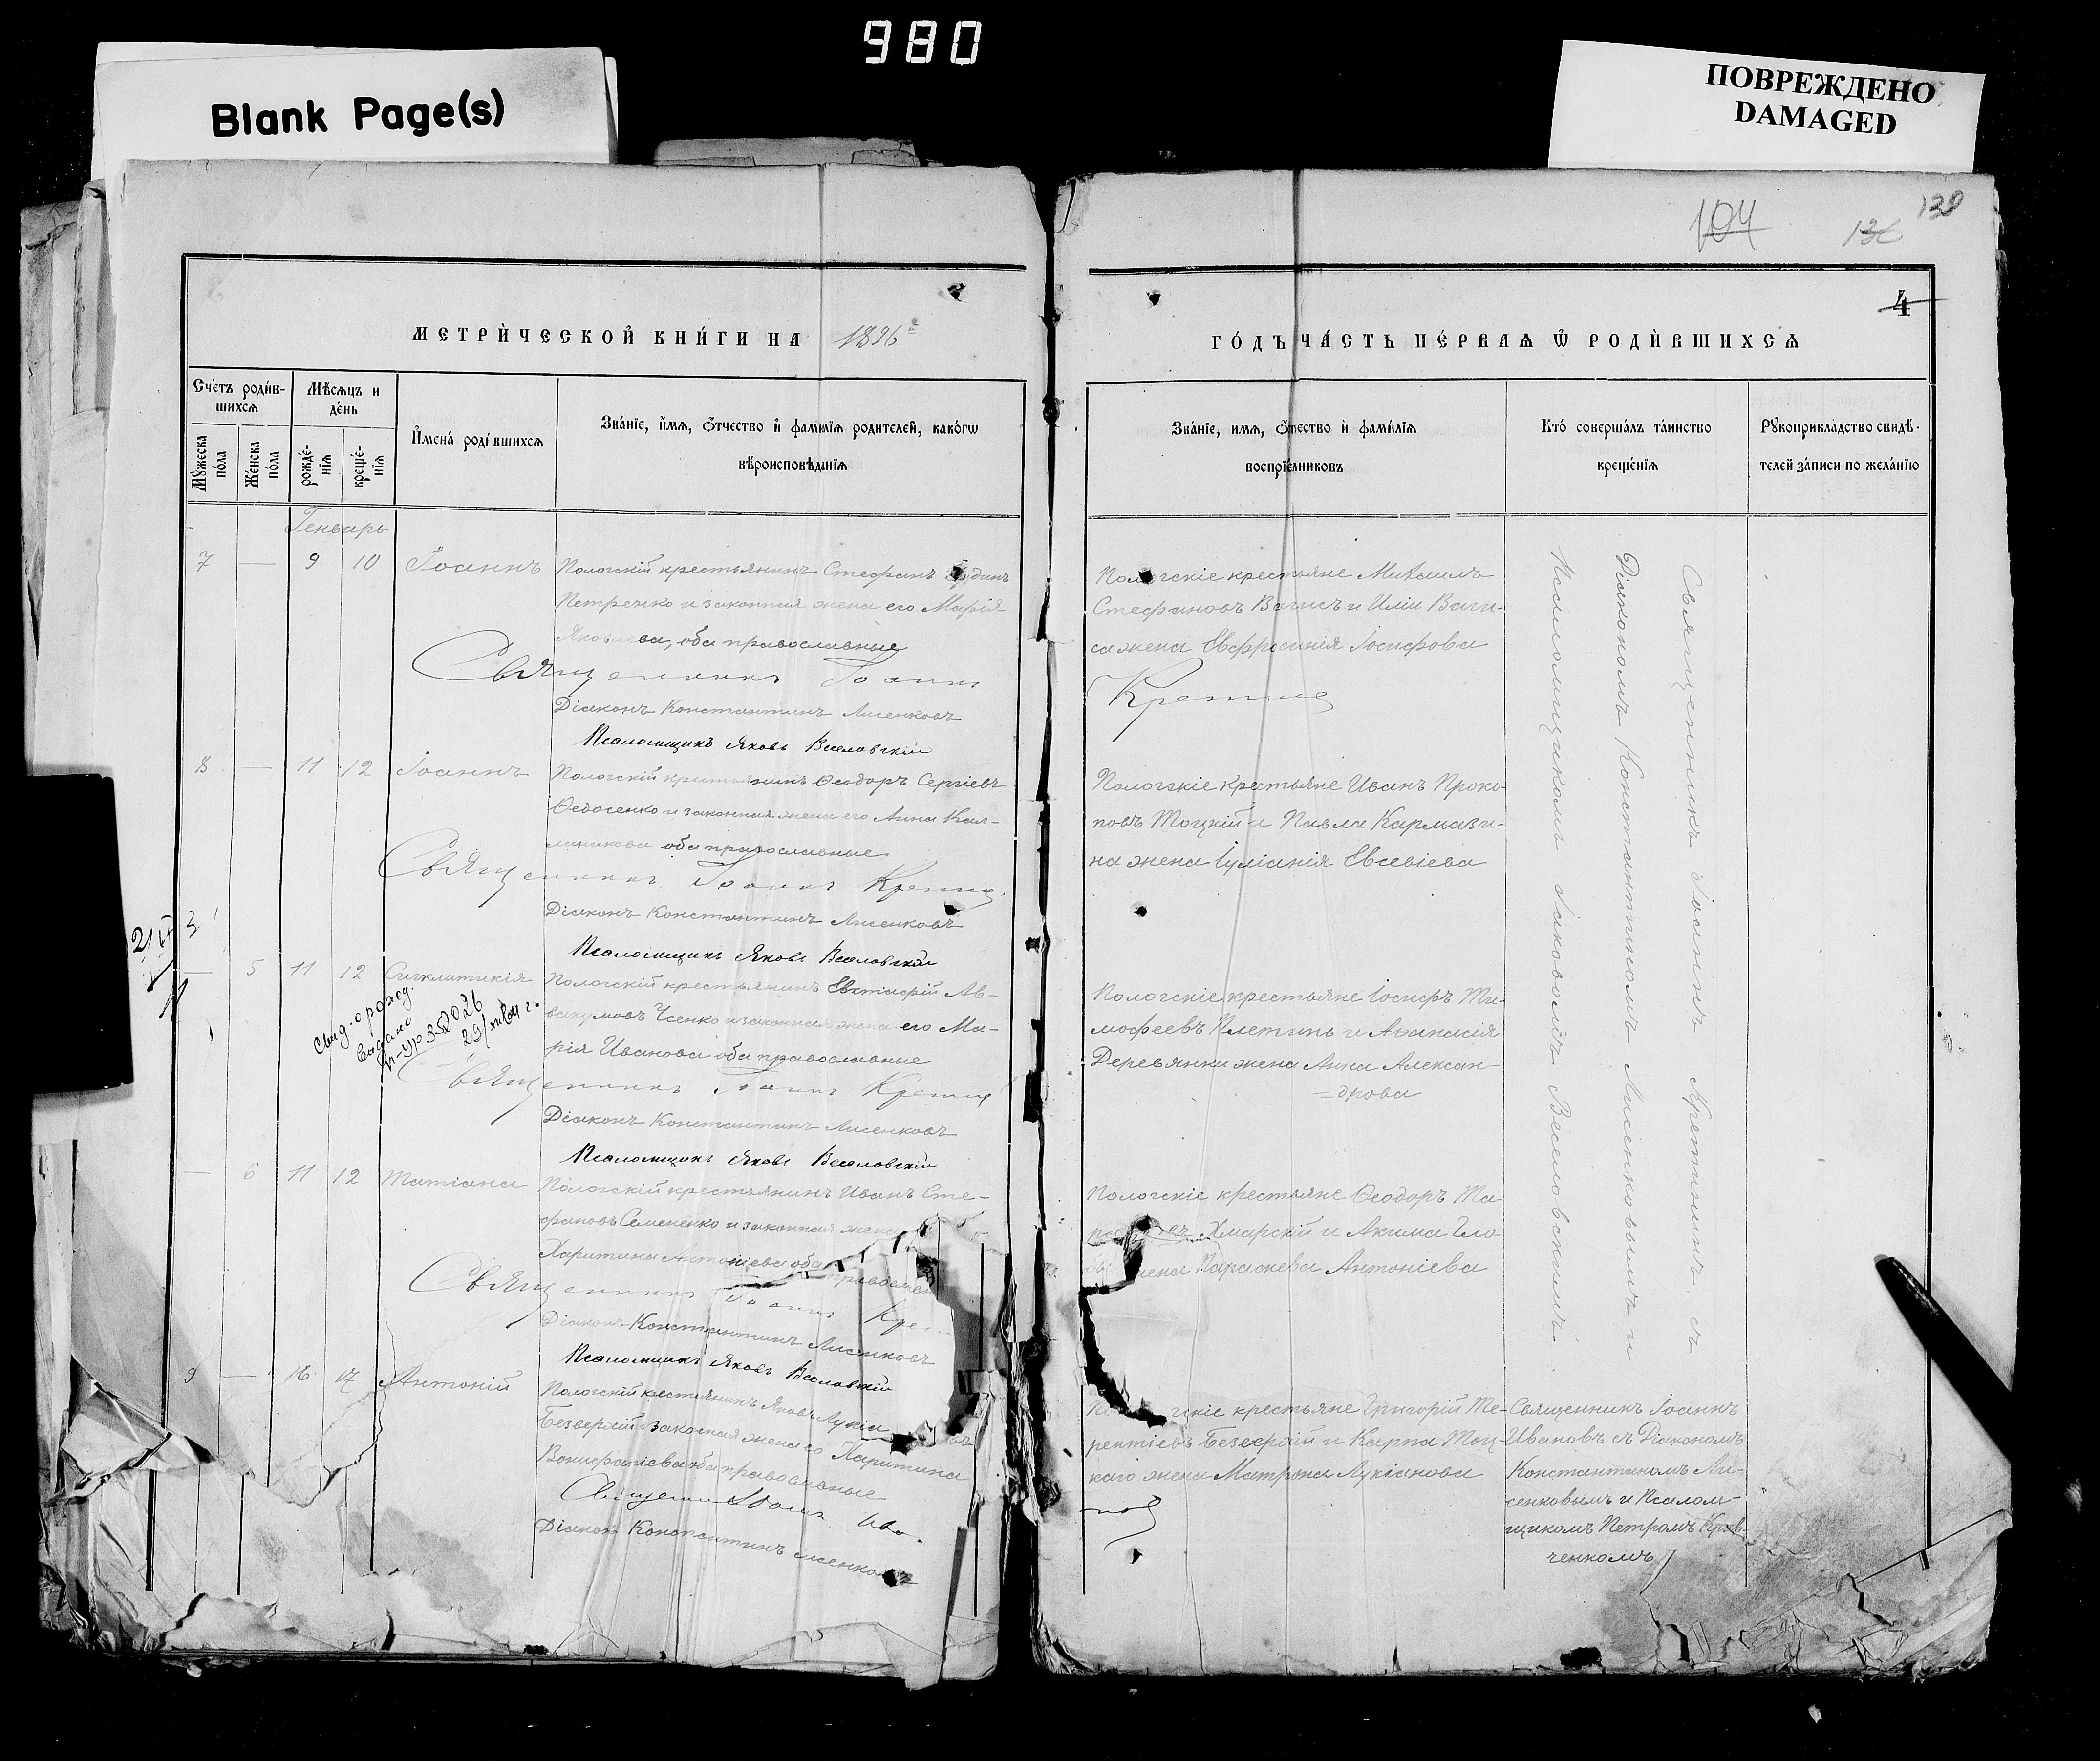 980
Blank Page(s)
ПОВРЕЖДЕНО
DAMAGED
104
136
130
4
МЕТРИ́ЧЕСКОЙ КНИ́ГИ НА 1896
ГО́ДЪ ЧА́СТЬ ПЕ́РВАѦ Ѿ РОДИ́ВШИХСѦ
Сче́тъ роди́в-
шихсѧ
Мѣ́сѧцъ и
де́нь
Мꙋ́жеска
по́ла
Же́нска
по́ла
рожде́-
нїѧ
креще́-
нїѧ
И҆мена́ роди́вшихсѧ
Зва́нїе, и҆́мѧ, ѻ҆́тчество и҆ фами́лїѧ родителей, како́гѡ
вѣроисповѣ́данїѧ
Зва́нїе, имѧ, ѻ҆́тчество и҆ фами́лїѧ
воспрїе́мниковъ
Кто̀ соверша́лъ та́инство
креще́нїѧ
Рꙋкоприкла́дство свидѣ́-
телей за́писи по жела́нїю
Генварь
7 — 9 10 Іоаннъ
Пологскій крестьянинъ Стефанъ
Петренко и законная жена его Марія
Яковлева, оба православные
Священникъ Іоаннъ
Діаконъ Константинъ Лисенковъ
Псаломщикъ Яковъ Веселовскій
Пологскіе крестьяне Михаилъ
Стефановъ Вагисъ и Иліи Ваги-
са жена Евфросинія Іосифова
8 — 11 12 Іоаннъ
Пологскій крестьянинъ Ѳеодоръ Сергіевъ
Ѳедосенко и законная жена его Анна Кал-
линикова оба православные
Священникъ Іоаннъ
Діаконъ Константинъ Лисенковъ
Псаломщикъ Яковъ Веселовскій
Пологскіе крестьяне Иванъ Проко-
повъ Тоцкій и Павла Кармази-
на жена Іуліанія Евсевіева
— 5 11 12 Сигклитикія
Пологскій крестьянинъ Евстафій Ав-
вакумовъ Усенко и законная жена его Ма-
рія Иванова оба православные
Священникъ Іоаннъ
Діаконъ Константинъ Лисенковъ
Псаломщикъ Яковъ Веселовскій
Свид. о рожд.
видано
Пологскіе крестьяне Іосифъ Ти-
мофеевъ Плетинь и Аѳанасія
Деревянки жена Анна Алексан-
=дрова
— 6 11 12 Татіана
Пологскій крестьянинъ Иванъ Сте-
фановъ Семененко и законная жена
Харитина Антоніева оба православ
Священникъ Іоаннъ
Діаконъ Константинъ Лисенковъ
Псаломщикъ Яковъ Веселовскій
Пологскіе крестьяне Ѳеодоръ Та-
Хмарскій и Акима Гло-
жена Параскева Антоніева
9 — 16 17 Антоній
Пологскій крестьянинъ Яковъ Лукіа
Безверхій и законная жена его Харитина
Вонифатіева оба православные
Священникъ Іоаннъ Ива
Діаконъ Константинъ Лисенковъ
гскіе крестьяне Григорій Те-
рентіевъ Безверхій и Карпа Тоц-
каго жена Матрона Лукіанова
новъ
Священникъ Іоаннъ с
Діакономъ Константиномъ Лисенковымъ и
Псаломщикомъ Іаковомъ Веселовскимъ.
Священникъ Іоаннъ
Ивановъ съ Діакономъ
Константиномъ Ли-
сенковымъ и Псалом-
щикомъ Петромъ Крав-
ченкомъ